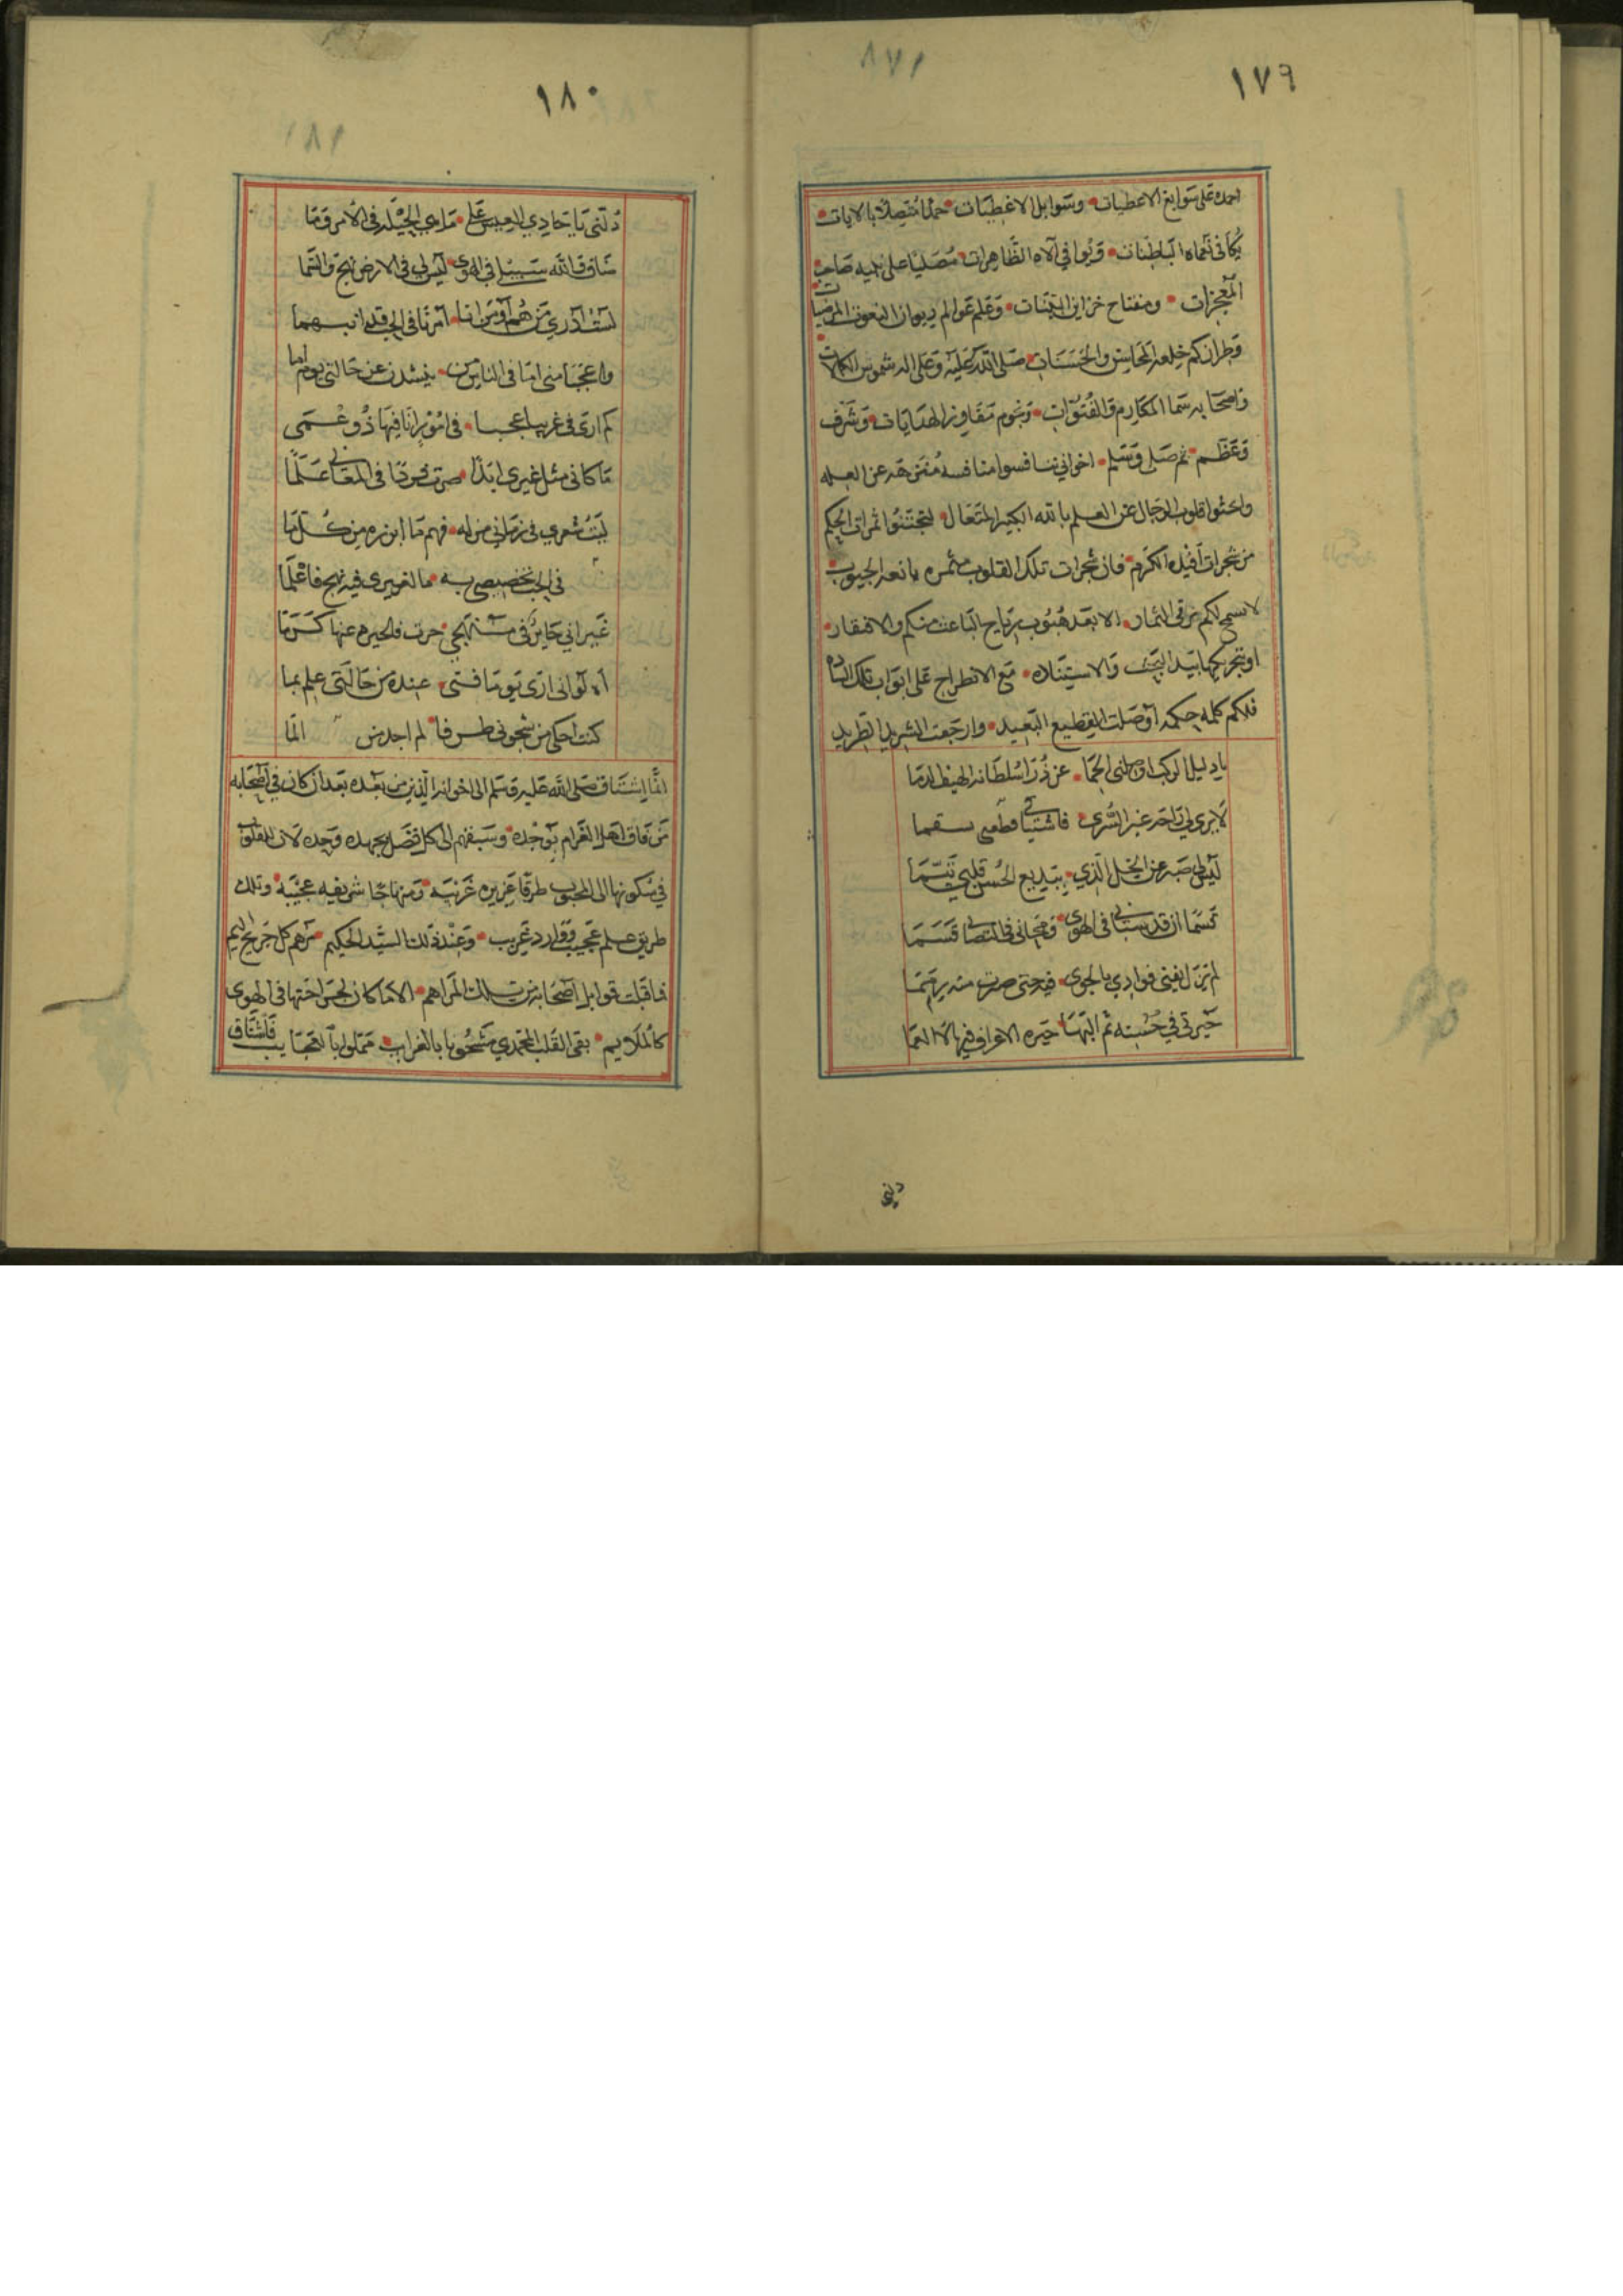 ١٧٩
احمده على سوابغ الاعطيات وسوابل الاغطيات حمدا متصلا بالايات
يكافى نعماه الباطنات ويوافي آلاه الظاهرات مصليا على نبيه صاحب
المعجزات ومفتاح خزاين البينات وعلم عوالم ديوان النعوت المرضيات
وطراز كم خلعه المحاسن والحسنات صلى الله عليه وعلى اله شموس الكمالات
واصحابه سما المكارم والفتوات ونجوم مفاوز الهدايات وشرف
وعظم ثم صلى وسلم اخواني تنافسوا منافسه عن العمله
واحثوا قلوب الرجال عن العلم بالله الكبير المتعال لتجتنوا ثمرات الحكم
من شجرات افيده الكرم فان شجرات تلك القلوب مثمره يانعه الجيوب
لا تسمح لكم برقى الثمار الا بعد هبوب رياح الباعث منكم والافتقار
او تحريكها بيد والاستنلاه مع الانطراح على ابواب تلك الساده
فلكم كلمه حكمه اوصلت القطيع البعيد وارجعت الشريد الطريد
يا دليل الركب اوصلنى الحما عن ذرا سلطانه الهيظ الدما
لا يرى لي راحه غير السرى فاشتياقي قطعنى سقما
ليس لي صبر عن الخل الذي ببديع الحسن قلبي تيما
قسما ان قد سباني في الهوى وفي التصابي قسما
لم يزل يفنى فوادي بالجوى فيه حتى صرت منه رمما
حيرتي في حسنه ثم البها حيره الاعراف فيها لا العما
دلني
١٨٠
دلني يا حادي العيس على ما هي الحيله في الامر وما
ضاق والله سبيلي في الهوى ليس لي في الارض نهج والسما
لست ادري من هم او من انا امرنا في الحب قد انبهما
واعجبا مني اما في الناس من ينشدن عن حالتي يوما اما
كم ارى في غريبا عجبا في امور انا فيها ذو عمى
ما كانى مثل غيري ابدا صرت فى المعاني علما
ليت شعري في زماني من له فهم ما ابرزه من كلما
في الحب تخصيصي به ما لغيري فيه نهج فاعلما
غير اني حاير في منهجي حرت فالحيره عنها كرما
اه لو اني ارى يوما فتى عنده من حالتي علم بما
كنت احكي من شجوني طرفا لم اجد من الما
انما اشتاق صلى الله عليه وسلم الى اخوانه الذين من بعده بعد ان كان في اصحابه
من فاق اهل الغرام بوجده وسبقهم الى كل فضل بجهده وجده لان للقلوب
في سكونها الى المحبوب طرقا عزيزه غريبه ومنهاجا شريفه عجيبه وتلك
طريق علم عجيب ووارد غريب وعند ذلك السيد الحكيم مرهم كل جريح اليم
فاقبلت قوابل اصحابه من تلك المراهم الا ما كان لجراحتها في الهوى
كالملايم بقى القلب المحمدي مشحونا بالغرايب مملوا بالعجايب فاشتاق